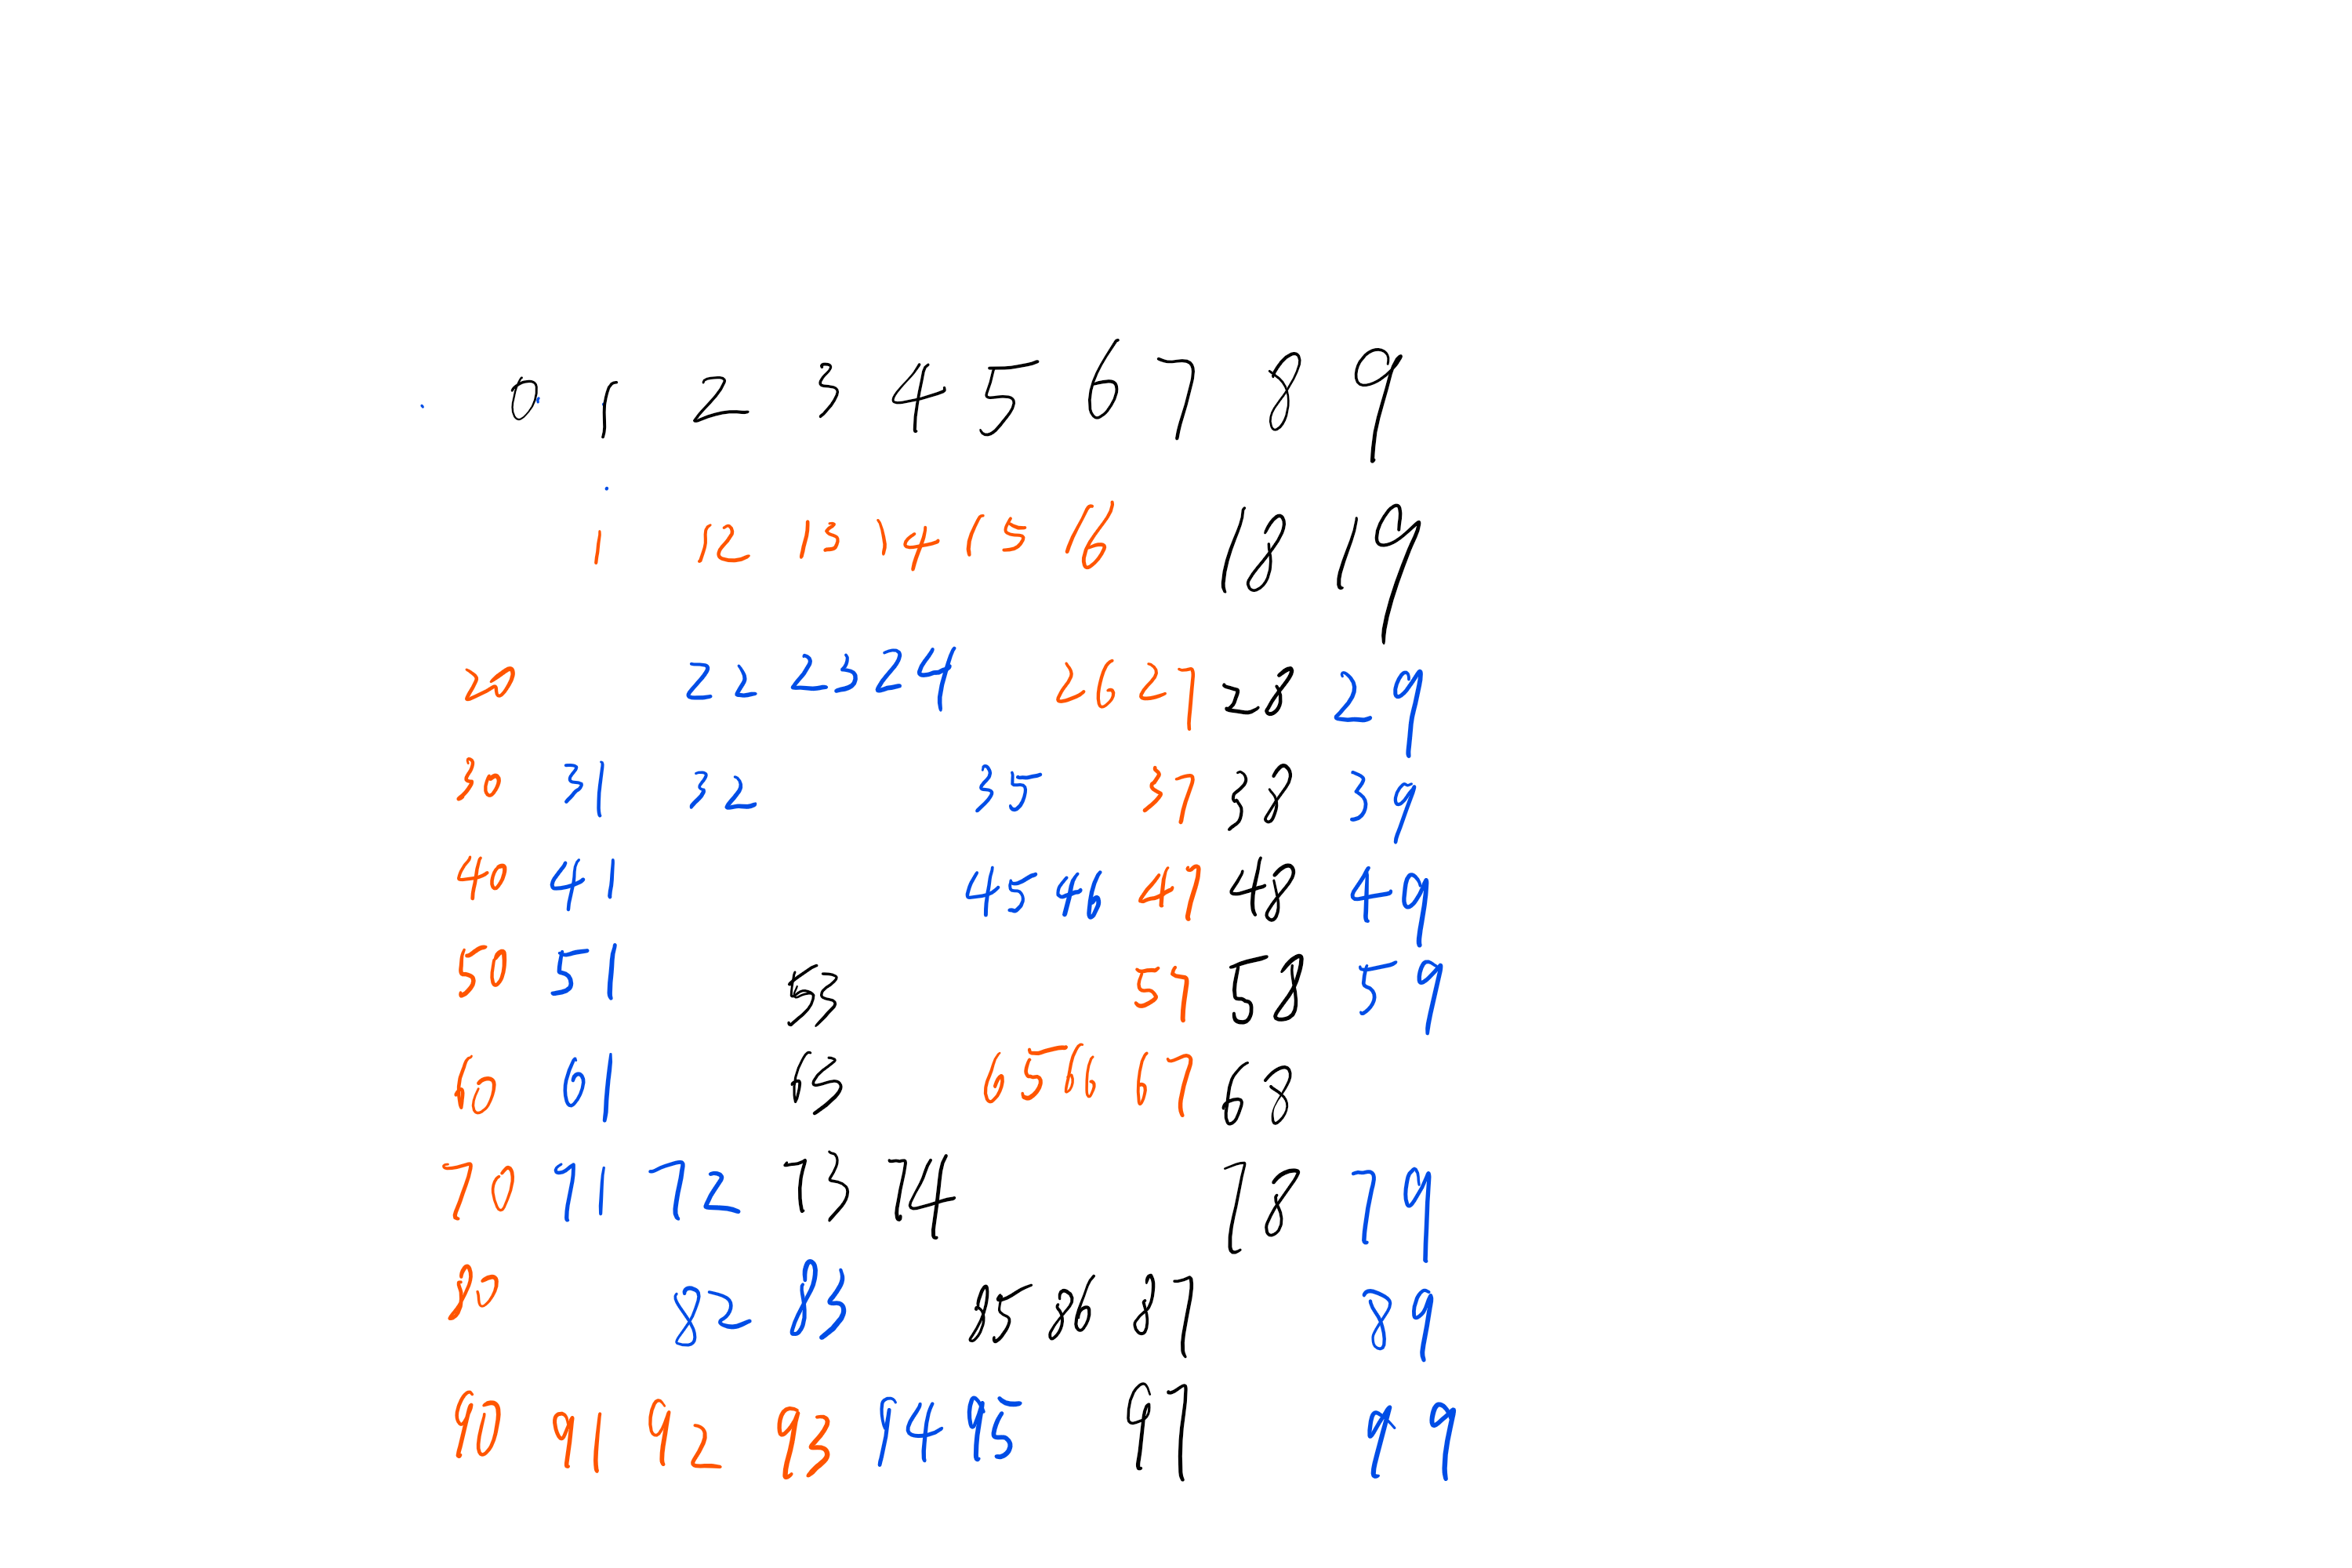 0 1 2 3 4 5 6 7 8 9
1 12 13 14 15 16 18 19
20 22 23 24 26 27 28 29
30 31 32 35 37 38 39
40 41 45 46 47 48 49
50 51 53 57 58 59
60 61 63 65 66 67 68
70 71 72 73 74 78 79
80 82 83 85 86 87 89
90 91 92 93 94 95 97 99